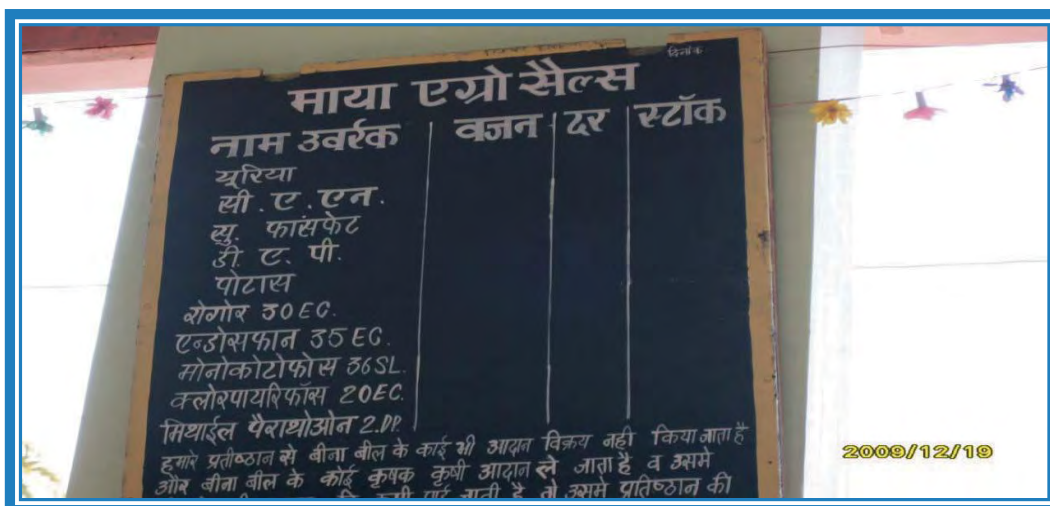 दिनांक
माया एग्रो सैल्स
नाम उवर्रक वजन दर स्टॉक
यूरिया
सी. ए. एन.
सु. फांसफेट
डी. ए. पी.
पोटास
रोगोर 30 EC.
एन्डोसफान 35 EC.
मोनोकोटोफोस 36 SL.
क्लोरपायरिफॉस 20 EC.
मिथाईल पैराथोओन 2. DP.
हमारे प्रतीष्ठान से बीना बील के काई भी आदान विक्रय नही किया जाता है
और बीना बील के कोई कृषक कृषी आदान ले जाता है व उसमे
पाई जाती है तो उसमे प्रतिष्ठान की
2009/12/19